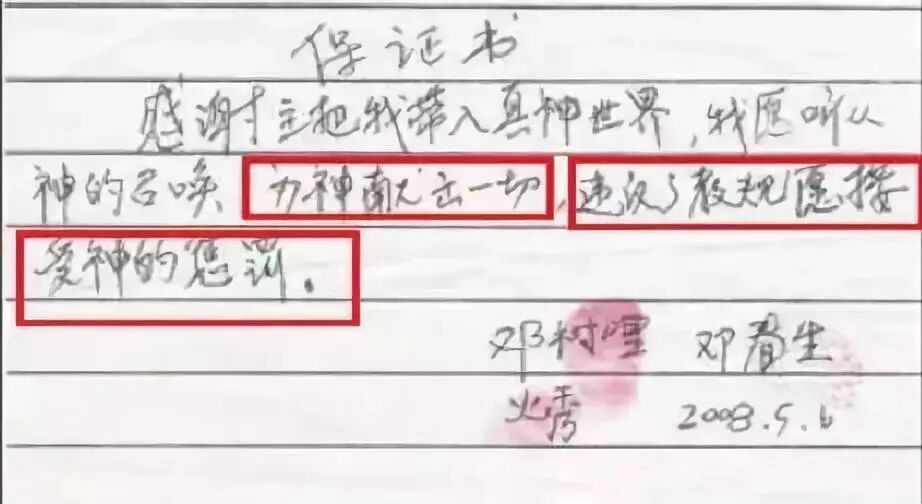 保证书
感谢主把我带入真神世界,我愿听从
神的召唤 为神献出一切,违反了教规愿接
受神的惩罚.
邓树 邓春生
火秀 2008.5.6